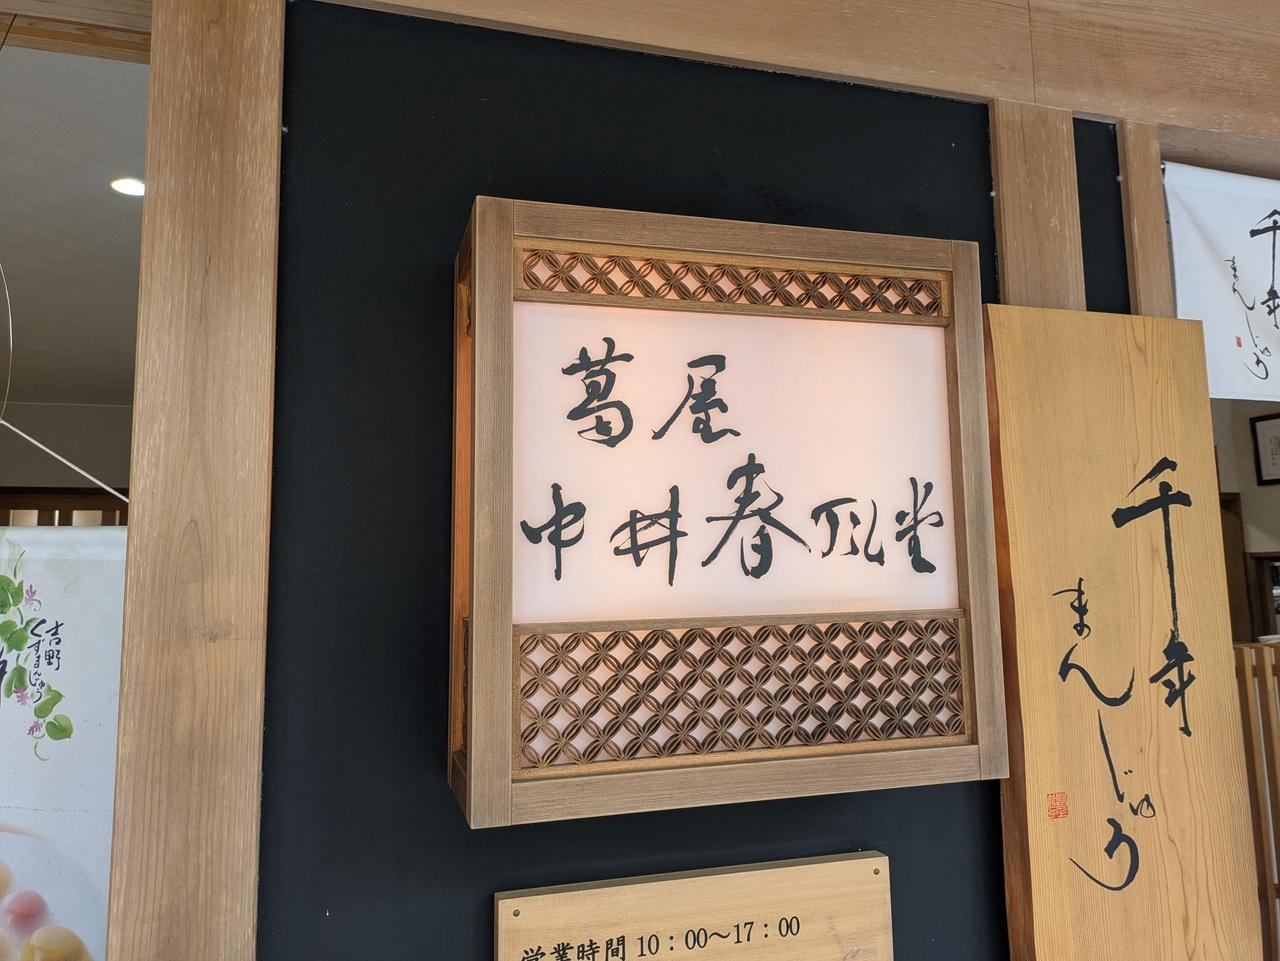 葛屋
中井春風堂
千年
まんじゅう
営業時間 10：00～17：00
千年
まんじゅう
吉野
くずまんじゅう